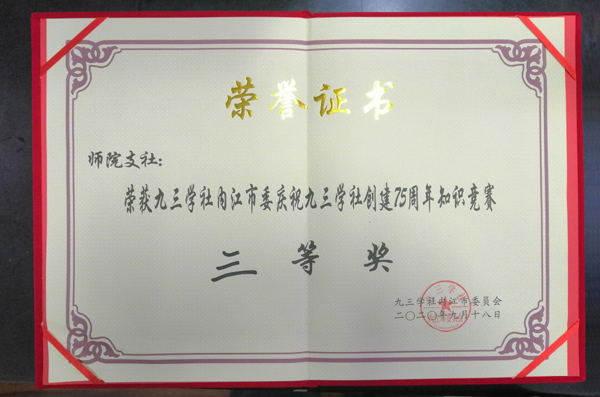 荣誉证书
师院支社：
荣获九三学社内江市委庆祝九三学社创建75周年知识竞赛
三等奖
九三学社内江市委员会
二〇二〇年九月十八日